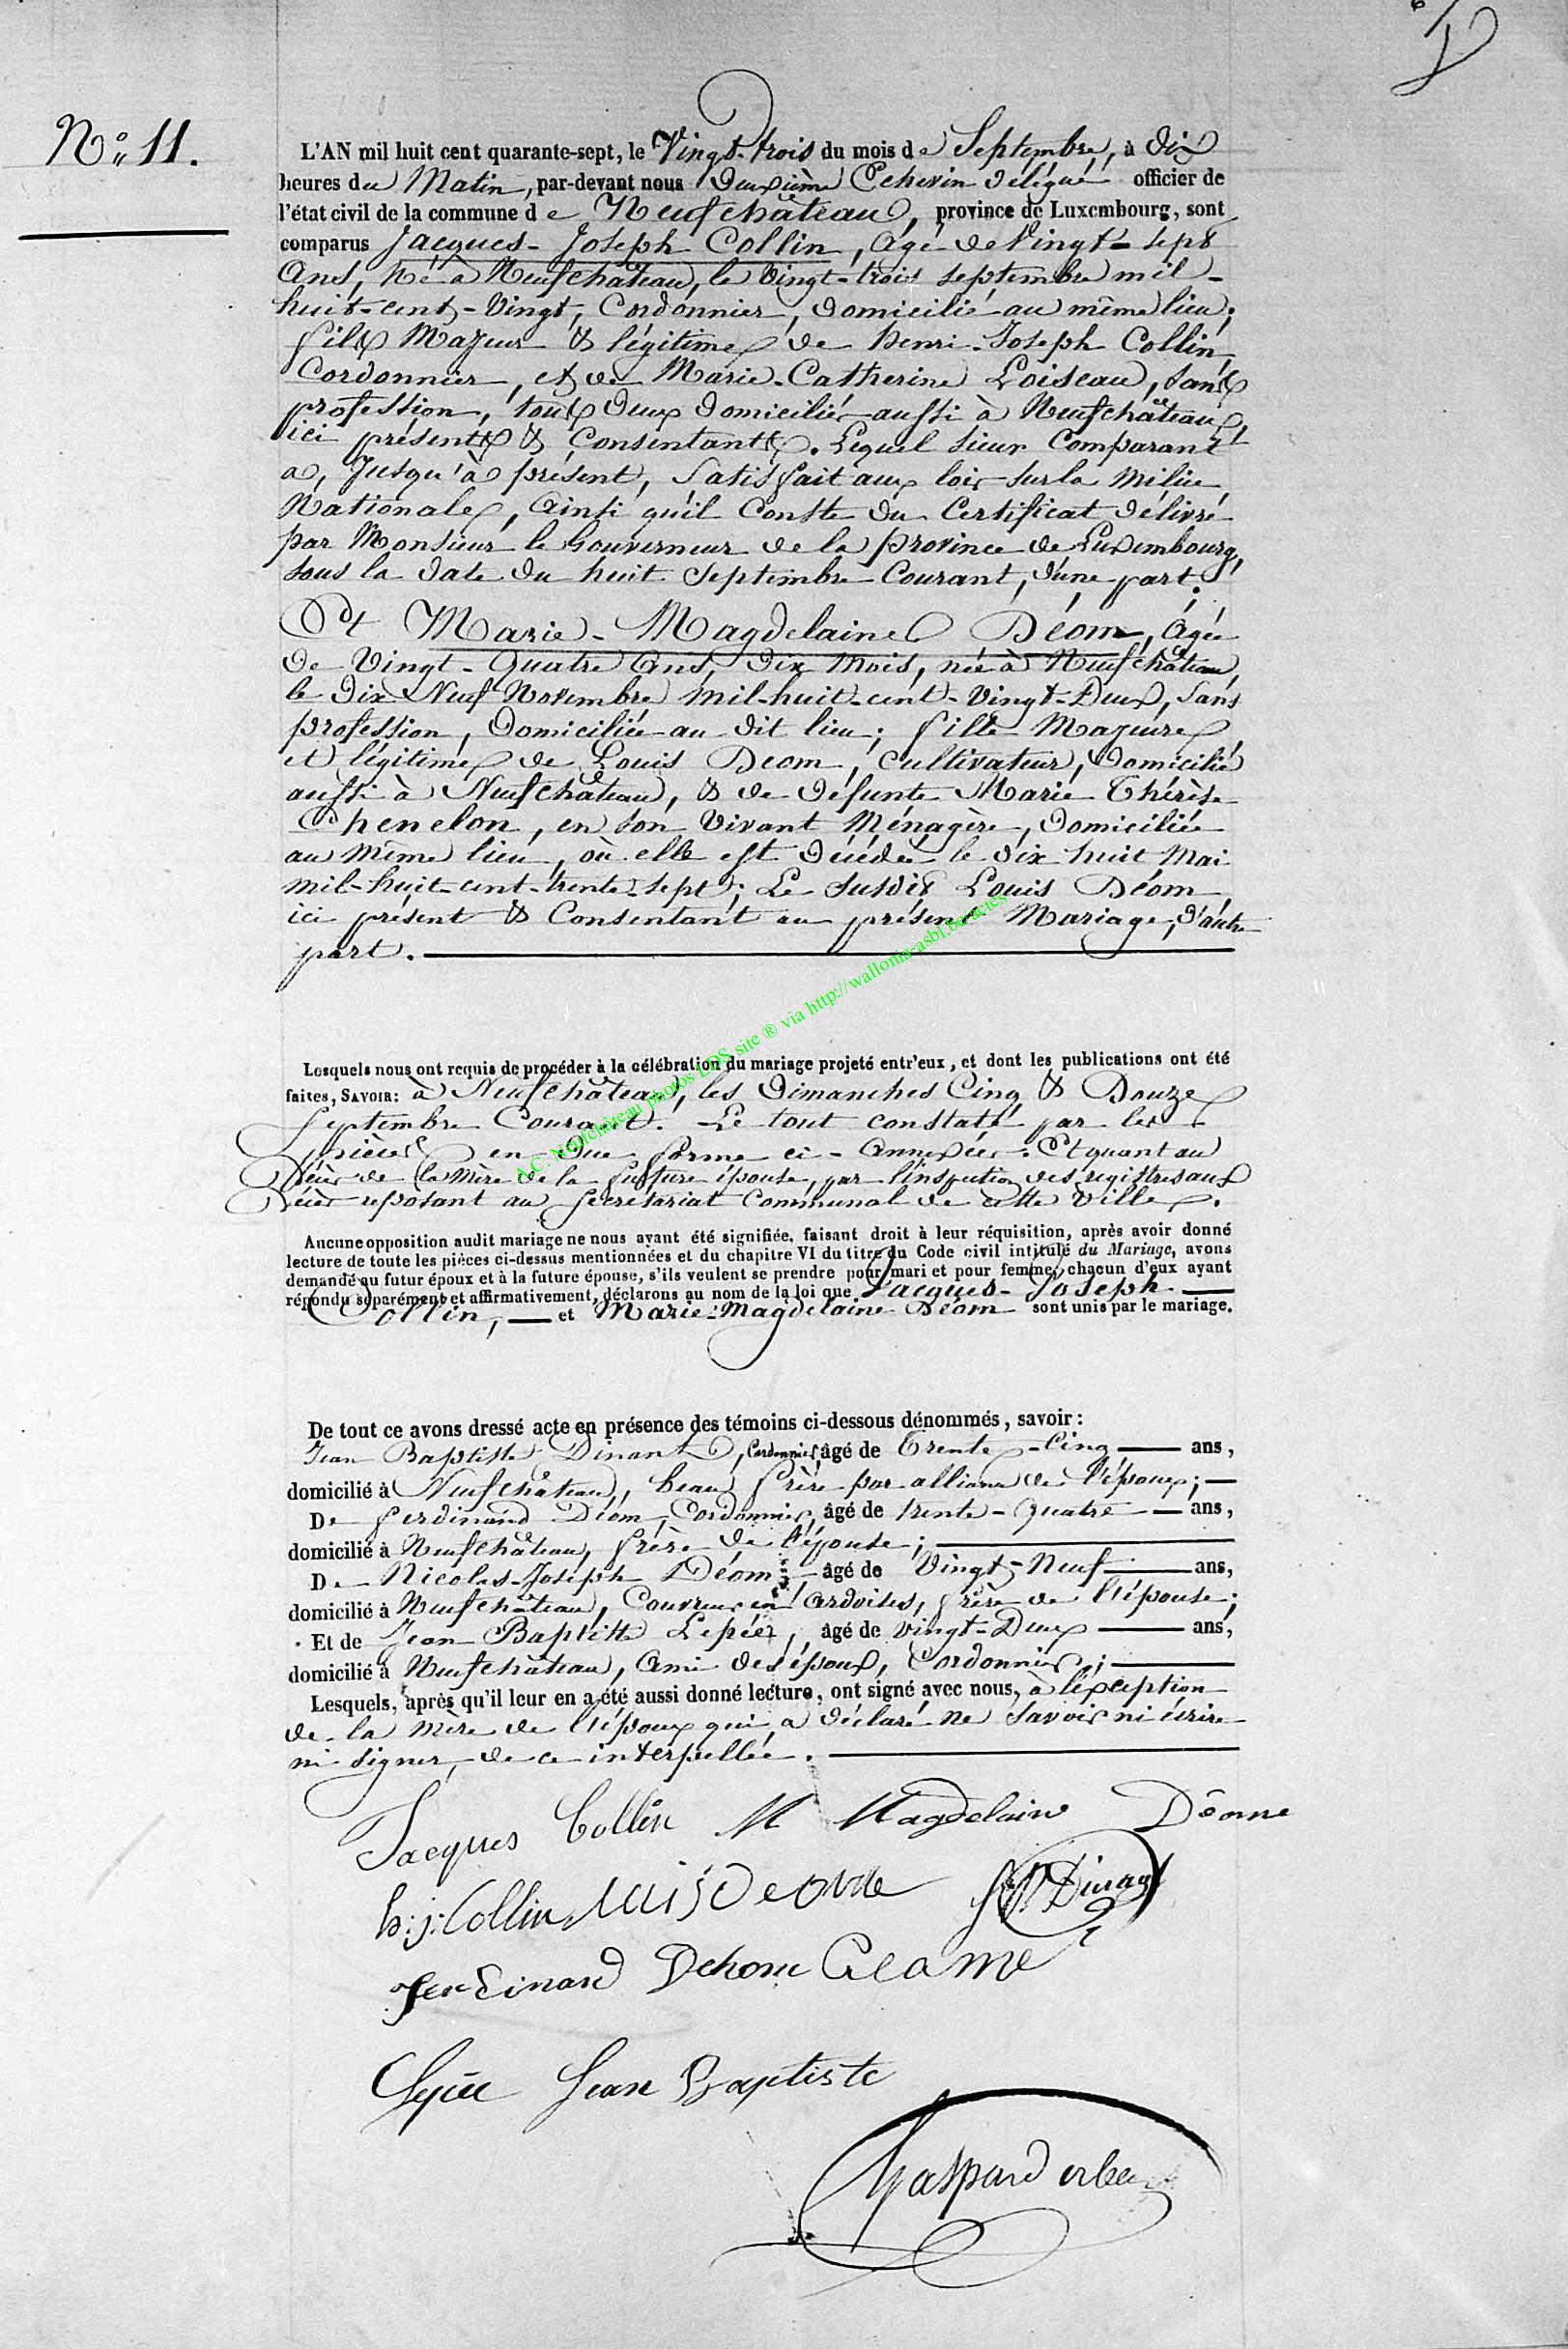 N° 11.
L'AN mil huit cent quarante-sept, le Vingt-trois du mois de Septembre, à Dix
heures du Matin, par-devant nous Deuxième Echevin délégué officier de
l'état civil de la commune de Neufchâteau, province de Luxembourg, sont
comparus Jacques-Joseph Collin, Agé de Vingt-sept
Ans, né à Neufchâteau, le Vingt-trois septembre mil-
huit-cent-Vingt, Cordonnier, Domicilié au même lieu;
fils Majeur & légitime de henri-Joseph Collin,
Cordonnier, et de Marie-Catherine Loiseau, sans
profession, tous Deux Domiciliés aussi à Neufchâteau,
ici présents & Consentants. Lequel sieur Comparant
a, Jusqu'à présent, Satisfait aux lois sur la Milice
Nationale, Ainsi qu'il Conste du Certificat délivré
par Monsieur le Gouverneur de la province de Luxembourg,
sous la date du huit Septembre Courant, d'une part;
Et Marie-Magdelaine Déom, Agée
de Vingt-Quatre Ans, Dix Mois, née à Neufchâteau,
le Dix Neuf Novembre Mil-huit-cent-Vingt-Deux, Sans
profession, Domiciliée au dit lieu; fille Majeure
et légitime de Louis Deom, Cultivateur, Domicilié
aussi à Neufchâteau, & de défunte Marie Thérèse
Chenelon, en son Vivant Ménagère, Domiciliée
au Même lieu, où elle est Décédée le dix huit Mai
mil-huit-cent-trente-sept; Le Susdit Louis Déom
ici présent & Consentant au présent Mariage, d'autre
part.
Lesquels nous ont requis de procéder à la célébration du mariage projeté entr'eux, et dont les publications ont été
faites, SAVOIR: à Neufchâteau, les Dimanches Cinq & Douze
Septembre Courant. Le tout constaté par les
pièces en due forme ci-Annexées. Et quant au
Décès de la Mère de la future épouse, par l'inspection des registres aux
Décès reposant au Secrétariat Communal de cette Ville.
Aucune opposition audit mariage ne nous ayant été signifiée, faisant droit à leur réquisition, après avoir donné
lecture de toute les pièces ci-dessus mentionnées et du chapitre VI du titre du Code civil intitulé du Mariage, avons
demandé au futur époux et à la future épouse, s'ils veulent se prendre pour mari et pour femme; chacun d'eux ayant
répondu séparément et affirmativement, déclarons au nom de la loi que Jacques-Joseph
Collin, et Marie-Magdelaine Déom sont unis par le mariage.
De tout ce avons dressé acte en présence des témoins ci-dessous dénommés, savoir:
Jean Baptiste Dinant, Cordonnier, âgé de Trente-Cinq ans,
domicilié à Neufchâteau, beau frère par alliance de l'époux;
De ferdinand Déom, Cordonnier, âgé de trente-Quatre ans,
domicilié à Neufchâteau, frère de l'épouse;
De Nicolas-Joseph Déom, âgé de Vingt-Neuf ans,
domicilié à Neufchâteau, Couvreur en Ardoises, frère de l'épouse;
Et de Jean Baptiste Lepée, âgé de vingt-Deux ans,
domicilié à Neufchâteau, Ami des époux, Cordonnier;
Lesquels, après qu'il leur en a été aussi donné lecture, ont signé avec nous, à l'éxception
de la mère de l'époux qui a déclaré ne Savoir ni écrire
ni signer, de ce interpellée.
Jacques Collin M Magdelaine Déome
h:j: Collin Deome Dinant
ferdinand Dehome
Lepée Jean Baptiste
Gaspard
A.C. Neufchâteau photos LDS site ® via http://wallonia-asbl.be/actes